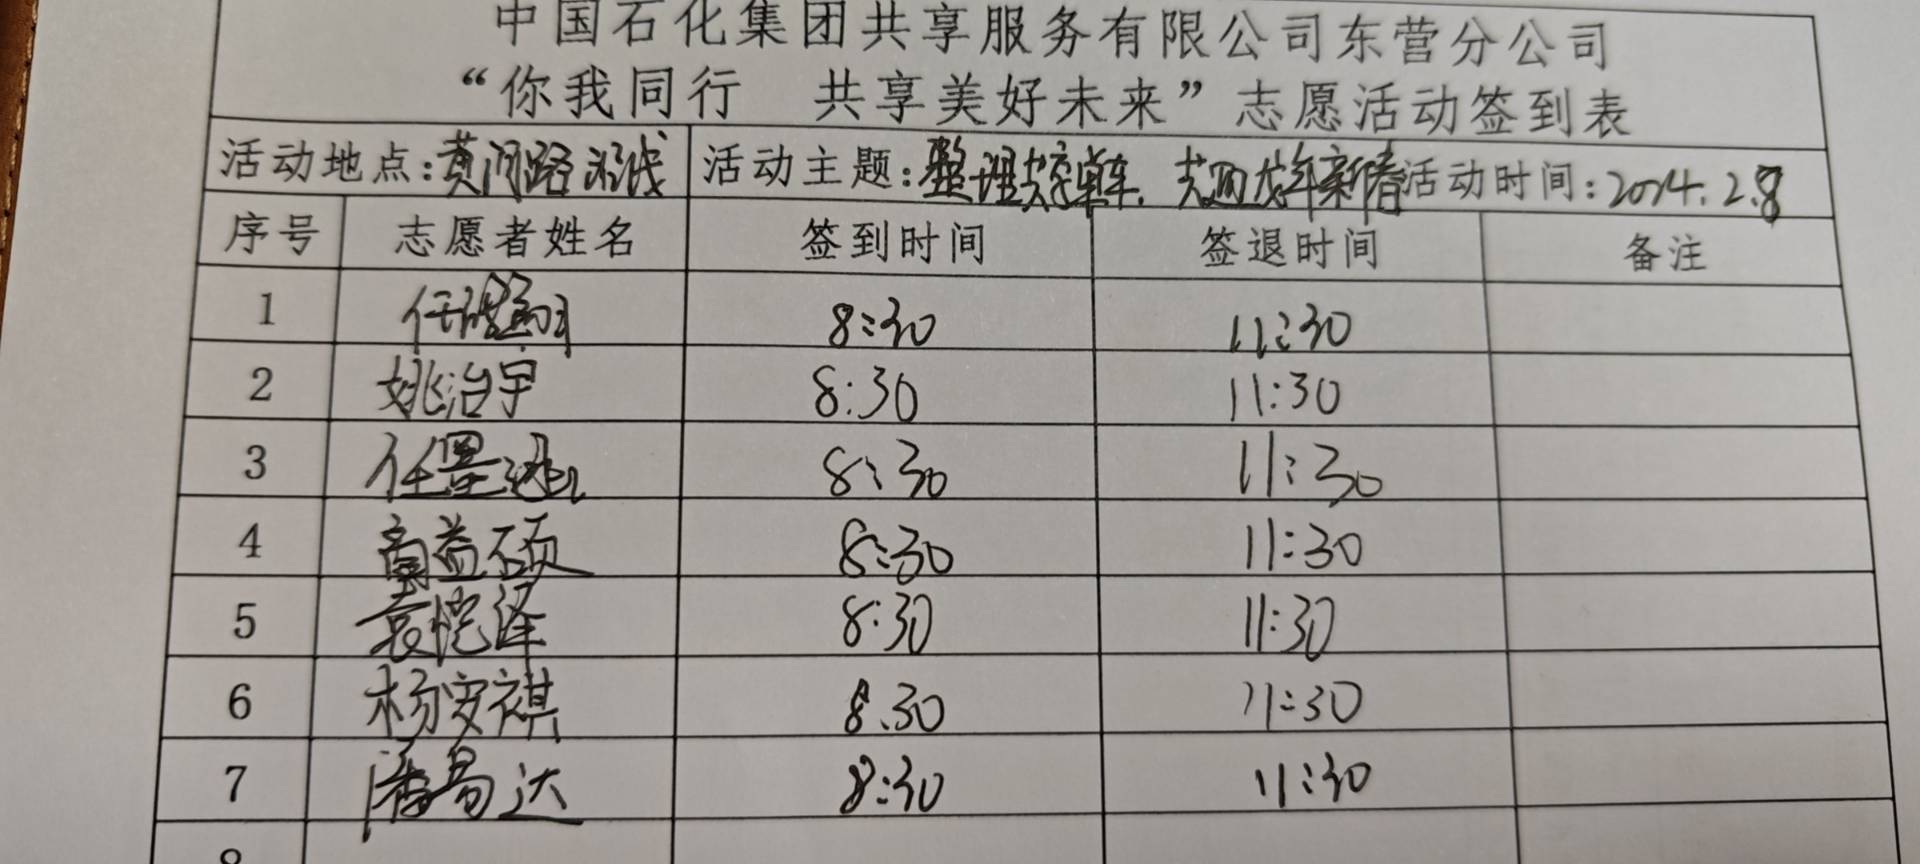 中国石化集团共享服务有限公司东营分公司
“你我同行　共享美好未来”志愿活动签到表
活动地点:黄河路沿线 活动主题:整理共享单车、共迎龙年新春 活动时间:2024.2.8
序号 志愿者姓名 签到时间 签退时间 备注
1 任 8:30 11:30
2 姚治宇 8:30 11:30
3 任墨 8:30 11:30
4 益硕 8:30 11:30
5 袁恺泽 8:30 11:30
6 杨安祺 8:30 11:30
7 潘易达 8:30 11:30
8